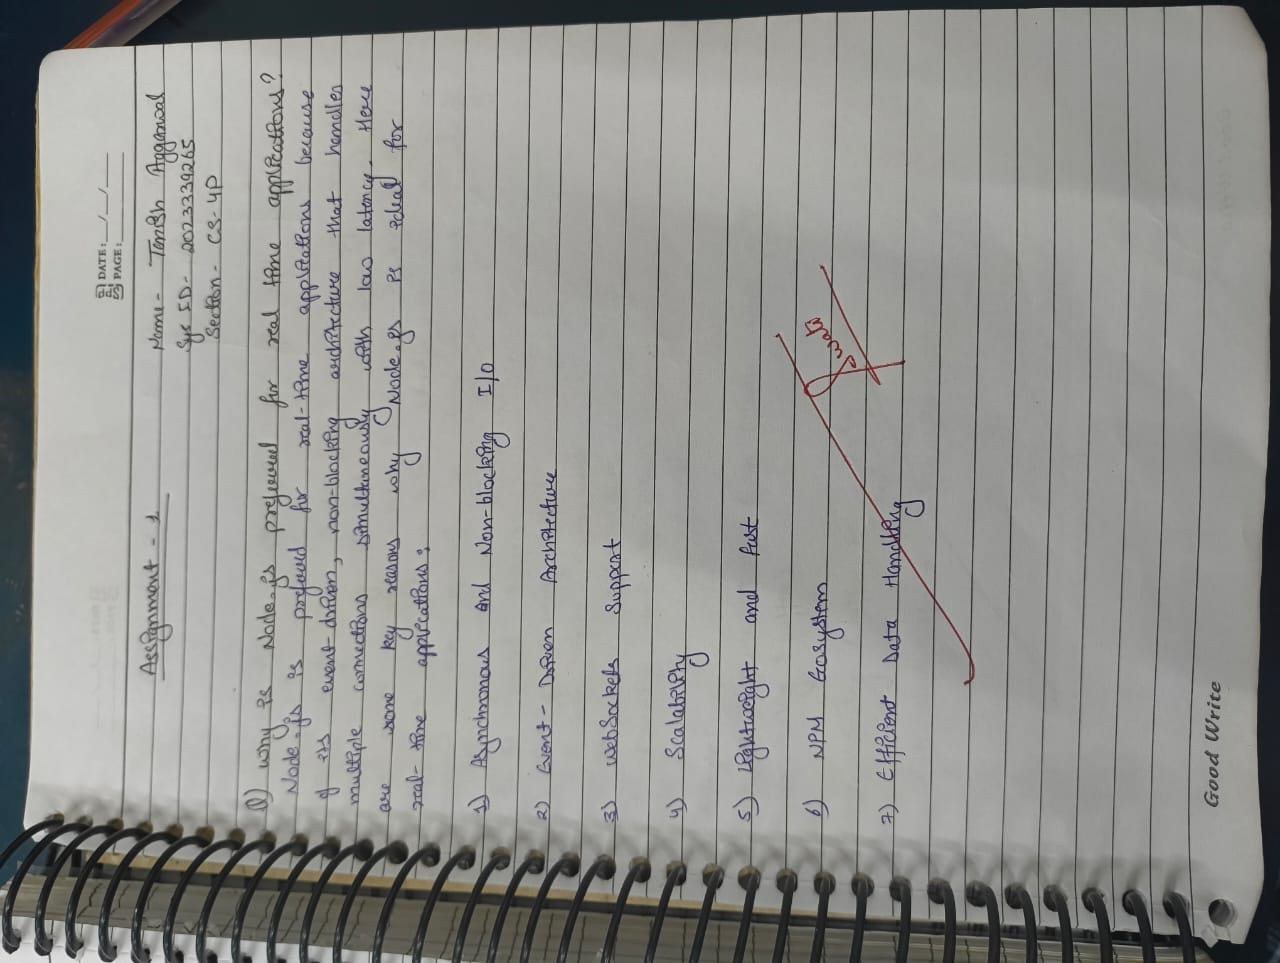 SPP DATE: __/__/____
PAGE: ________
Assignment - 1
Name - Tanish Aggarwal
Sys ID - 2023339265
Section - CS-4P
Q) Why is Node.js preferred for real time applications?
Node.js is preferred for real-time applications because
of its event-driven, non-blocking architecture that handles
multiple connections simultaneously with low latency. Here
are some key reasons why Node.js is ideal for
real-time applications:
1) Asynchronous and Non-blocking I/O
2) Event-Driven Architecture
3) WebSockets Support
4) Scalability
5) Lightweight and fast
6) NPM Ecosystem
7) Efficient Data Handling
Swati
Good Write